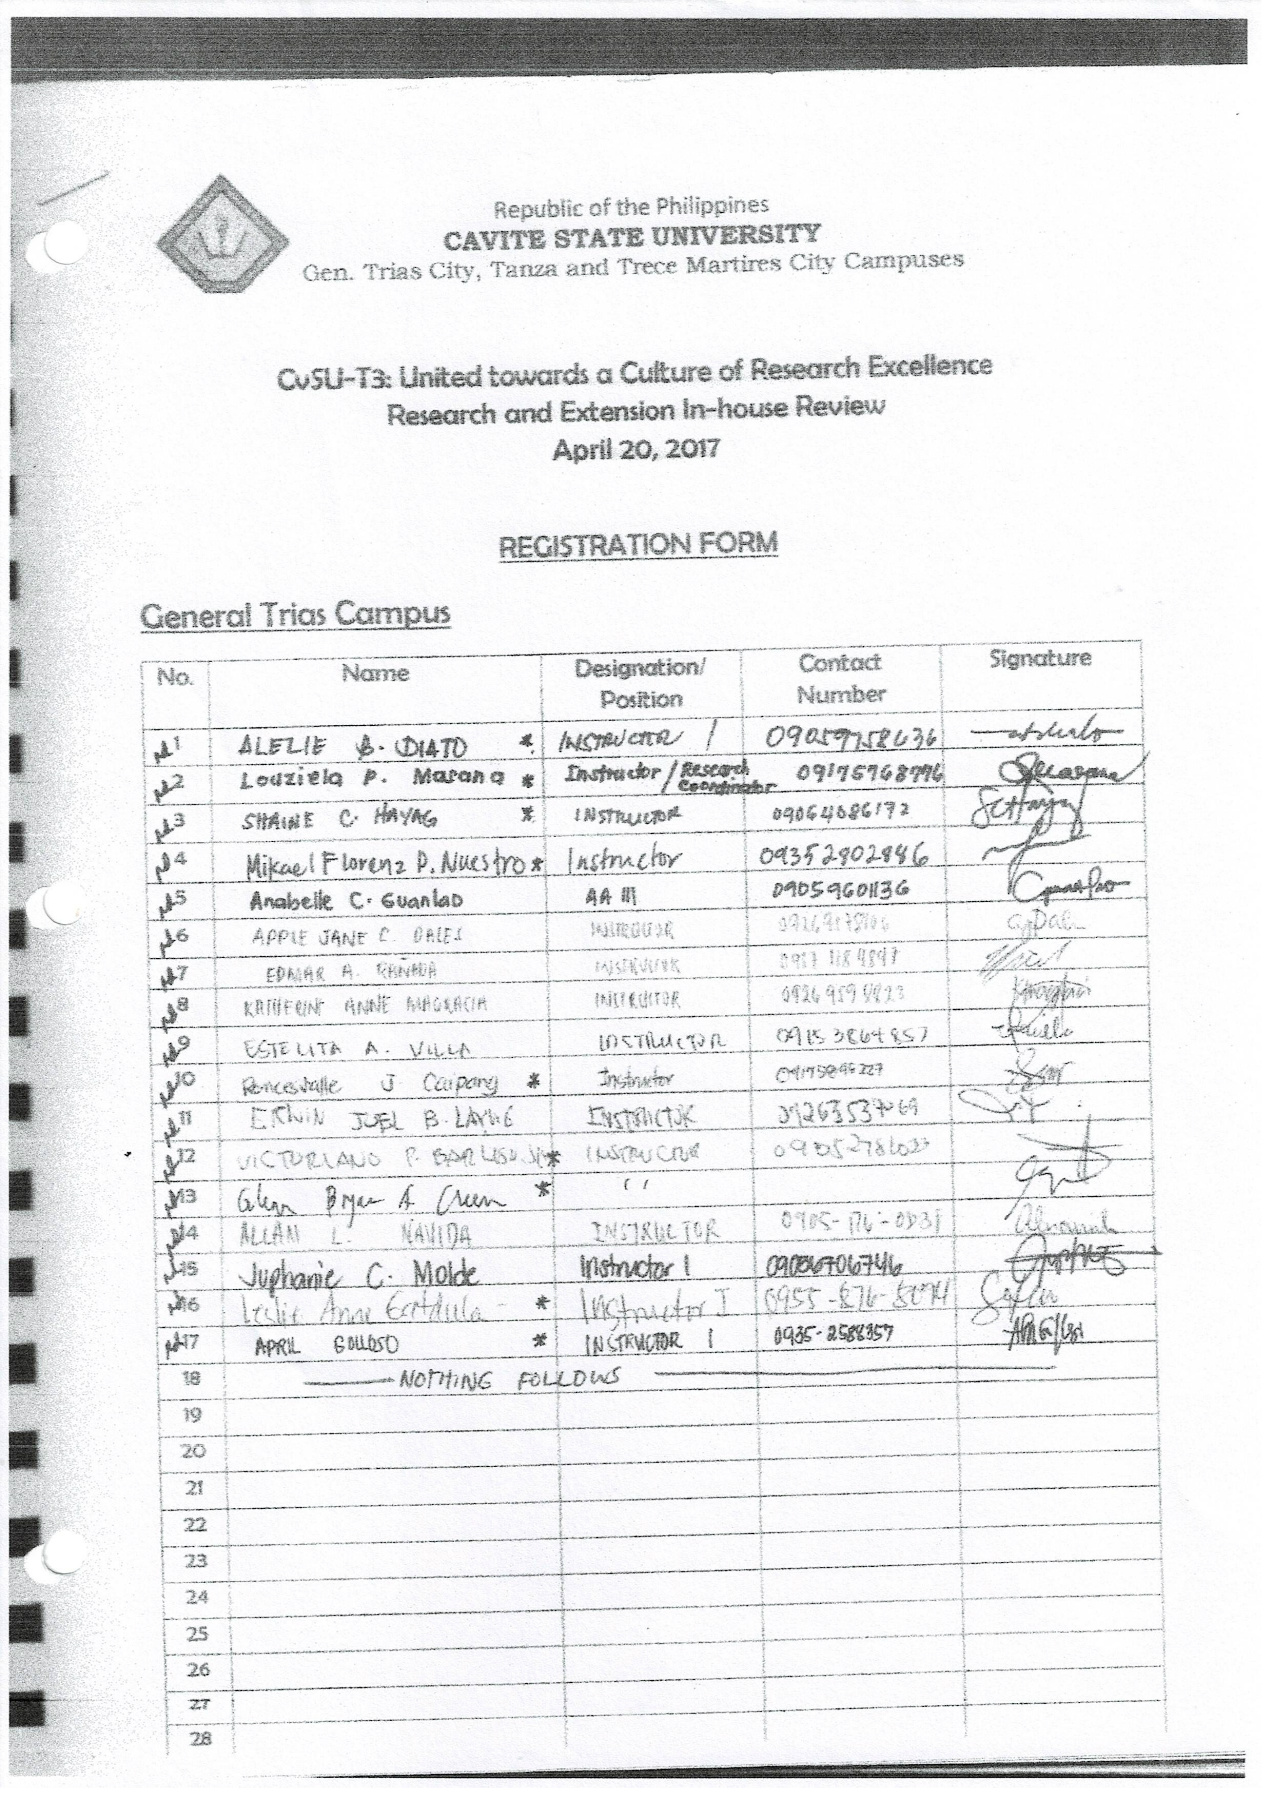 Republic of the Philippines
CAVITE STATE UNIVERSITY
Gen. Trias City, Tanza and Trece Martires City Campuses
CvSU-T3: United towards a Culture of Research Excellence
Research and Extension In-house Review
April 20, 2017
REGISTRATION FORM
General Trias Campus
No. Name Designation/ Position Contact Number Signature
1 ALELIE B. DIATO * INSTRUCTOR 1 09059758636
2 Louziela P. Masana * Instructor / Research Coordinator 09175768776
3 SHAINE C. HAYAG * INSTRUCTOR 09064086172
4 Mikael Florenz P. Nuestro * Instructor 09352802886
5 Anabelle C. Guanlao AA III 09059601136
6 APPLE JANE C. DALES INSTRUCTOR
7 EDMAR A. RANADA INSTRUCTOR
8 KATHERINE ANNE MAGRACIA INSTRUCTOR
9 ESTELITA A. VILLA INSTRUCTOR 09153864857
10 J Caipang * Instructor
11 ERWIN JOEL B. LAYUG INSTRUCTOR
12 VICTORIANO P. * INSTRUCTOR
13 Glenn Bryan A. * ''
14 ALLAN L. NAVIDA INSTRUCTOR
15 Juphanie C. Molde Instructor 1 09086706746
16 Leslie Anne * Instructor I
17 APRIL GOLLOSO * INSTRUCTOR 1 0935-2588357
18 NOTHING FOLLOWS
19
20
21
22
23
24
25
26
27
28